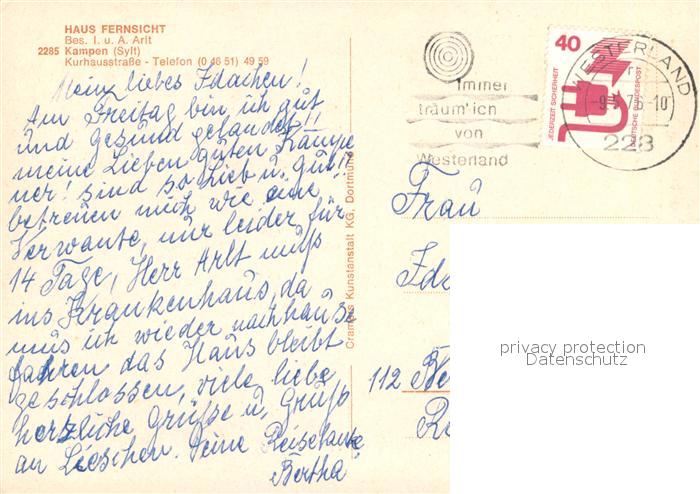 HAUS FERNSICHT
Bes. I. u. A. Arlt
2285 Kampen (Sylt)
Kurhausstraße - Telefon (0 46 51) 49 59
Meinz liebes Idachen!
Am Freitag bin ich gut
und gesund gelandet!!
meine Lieben guten Kämpe
ner! sind so Lieb u. gut!!
betreuen mich wie eine
Verwante, nur leider für
14 Tage, Herr Arlt muß
ins Krankenhaus, da
mus ich wieder nachhause
fahren das Haus bleibt
geschlossen, viele liebe
herzliche Grüße u. Gruß
an Lieschen. Deine Reisetante
Bertha
Cramers Kunstanstalt KG, Dortmund
Immer
träum' ich
von
Westerland
40
JEDERZEIT SICHERHEIT
DEUTSCHE BUNDESPOST
WESTERLAND
-10
228
Frau
Ida
112 Be
privacy protection
Datenschutz